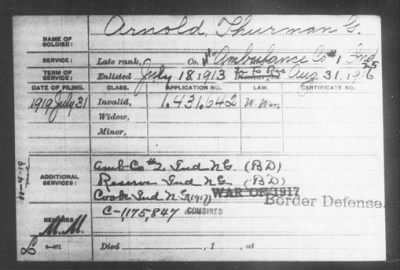 NAME OF SOLDIER: Arnold, Thurman G.
SERVICE: Late rank, Co. Ambulance Co #1, Ind
TERM OF SERVICE: Enlisted July 18, 1913 Aug 31, 1916
DATE OF FILING. CLASS. APPLICATION NO. LAW. CERTIFICATE NO.
1919 July 31 Invalid, 1,431,642 W. War.
Widow,
Minor,
ADDITIONAL SERVICES: Amb Co #2, Ind N.G. (BD)
Reserve Ind N.G. (BD)
Cook Ind N.G. (1917) WAR OF 1917 Border Defense.
REMARKS: C-1,175,847 COMBINED
M.M.
Died , 1 , at